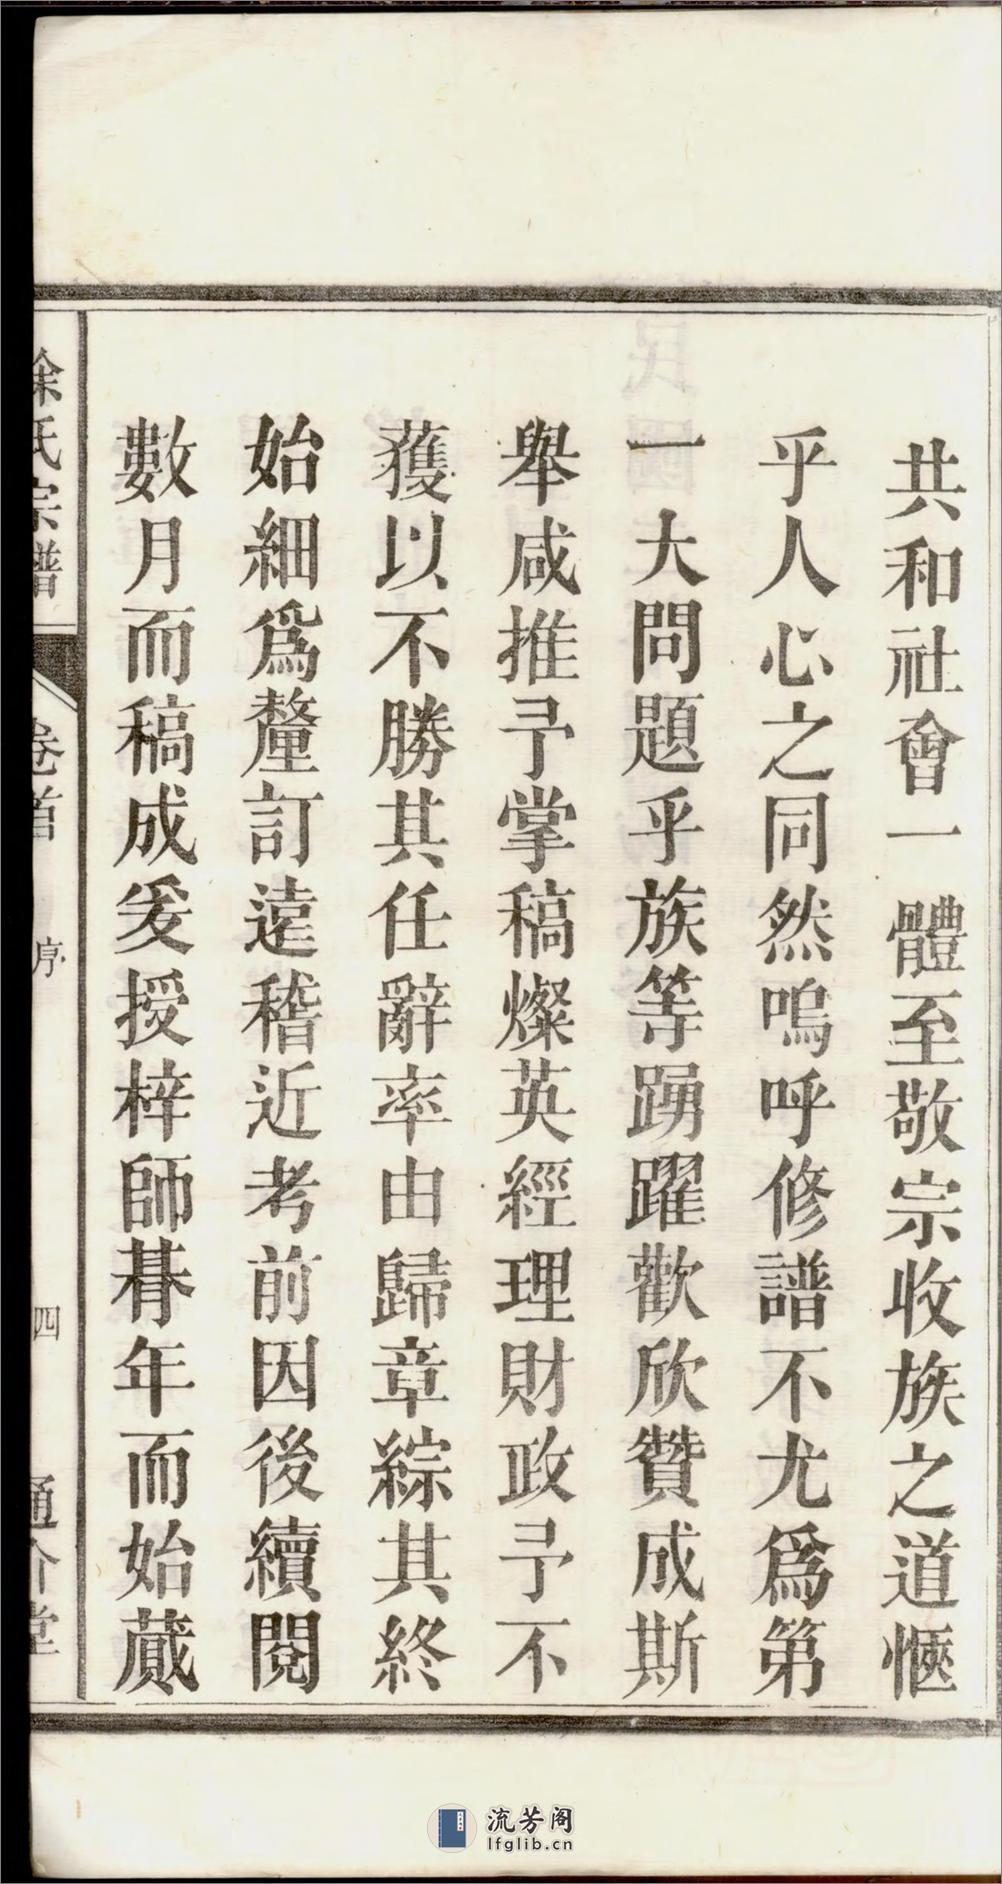 共和社會一體至敬宗收族之道愜
乎人心之同然嗚呼修譜不尤爲第
一大問題乎族等踴躍歡欣贊成斯
舉咸推予掌稿燦英經理財政予不
獲以不勝其任辭率由歸章綜其終
始細爲釐訂遠稽近考前因後續閱
數月而稿成爰授梓師朞年而始蕆
徐氏宗譜
卷首
序
四
通介堂
流芳阁
lfglib.cn